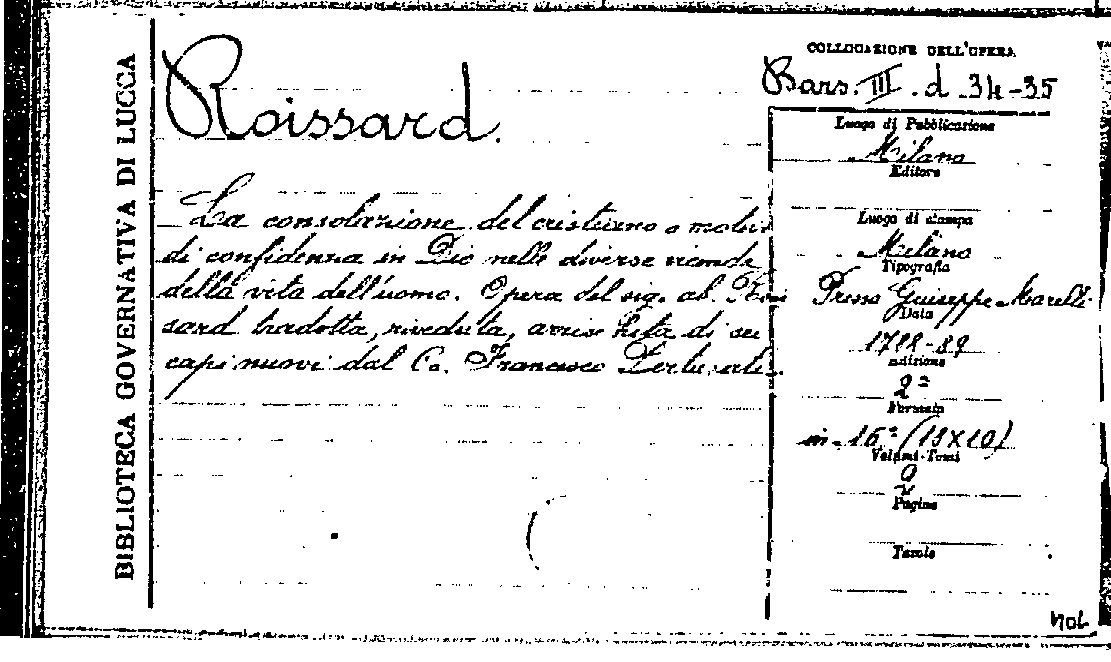 BIBLIOTECA GOVERNATIVA DI LUCCA
Roissard.
La consolazione del cristiano o motivi
di confidenza in Dio nelle diverse vicende
della vita dell'uomo. Opera del sig. ab. Rois
sard tradotta, riveduta, arricchita di se
capi nuovi dal Co. Francesco
COLLOCAZIONE DELL'OPERA
Bars. III. d. 34-35
Luogo di Pubblicazione
Milano
Editore
Luogo di stampa
Milano
Tipografia
Presso Giuseppe Marelli.
Data
1788-89
Edizione
2ª
Formato
in-16º (18X10)
Volumi-Tomi
2
Pagine
Tavole